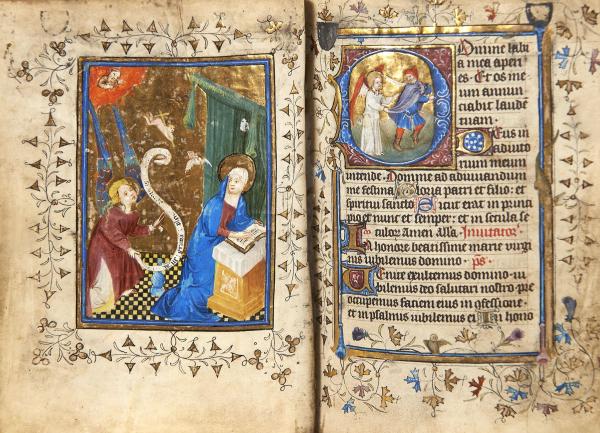 Domine labi
a mea aperi
es. Et os me
um annun
ciabit laudē
tuam.
Deus in
adiuto
rium meum
intende. Domine ad adiuvandum
me festina Gloria patri et filio: et
spiritui sancto Sicut erat in princi
pio et nunc et semper: et in secula se
culorum amen alla. Invitatoꝝ
In honore beatissime marie virgi
nis iubilemus domino. ps
Venite exultemus domino iu
bilemus deo salutari nostro: pre
occupemus faciem eius in cōfessione
et in psalmis iubilemus ei In hono